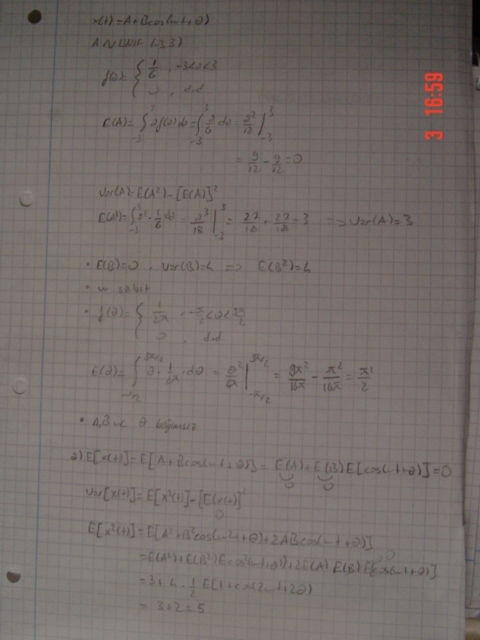 x(t)=A+Bcos(ωt+θ)
A∼UNIF (-3,3)
f(a)= { 1/6 , -3<a<3
0 , d.d
3 16:59
E(A)= ∫_{-3}^{3} a f(a) da = ∫_{-3}^{3} a/6 da = a²/12 |_{-3}^{3}
= 9/12 - 9/12 = 0
Var(A)=E(A²)-[E(A)]²
E(A²)= ∫_{-3}^{3} a² · 1/6 da = a³/18 |_{-3}^{3} = 27/18 + 27/18 = 3 ⇒ Var(A)=3
• E(B)=0 , Var(B)=4 ⇒ E(B²)=4
• w sabit
• f(θ)= { 1/2π , -π/2<θ<3π/2
0 , d.d
E(θ)= ∫_{-π/2}^{3π/2} θ · 1/2π · dθ = θ²/4π |_{-π/2}^{3π/2} = 9π²/16π - π²/16π = π/2
• A,B ve θ bağımsız
a) E[x(t)]=E[A+Bcos(ωt+θ)]=E(A)+E(B)E[cos(ωt+θ)]=0
0 0
Var[x(t)]=E[x²(t)]-[E(x(t))]²
0
E[x²(t)]=E[A²+B²cos²(ωt+θ)+2ABcos(ωt+θ)]
=E(A²)+E(B²)E(cos²(ωt+θ))+2E(A)E(B)E[cos(ωt+θ)]
=3+4·1/2 E[1+cos(2ωt+2θ)
=3+2=5